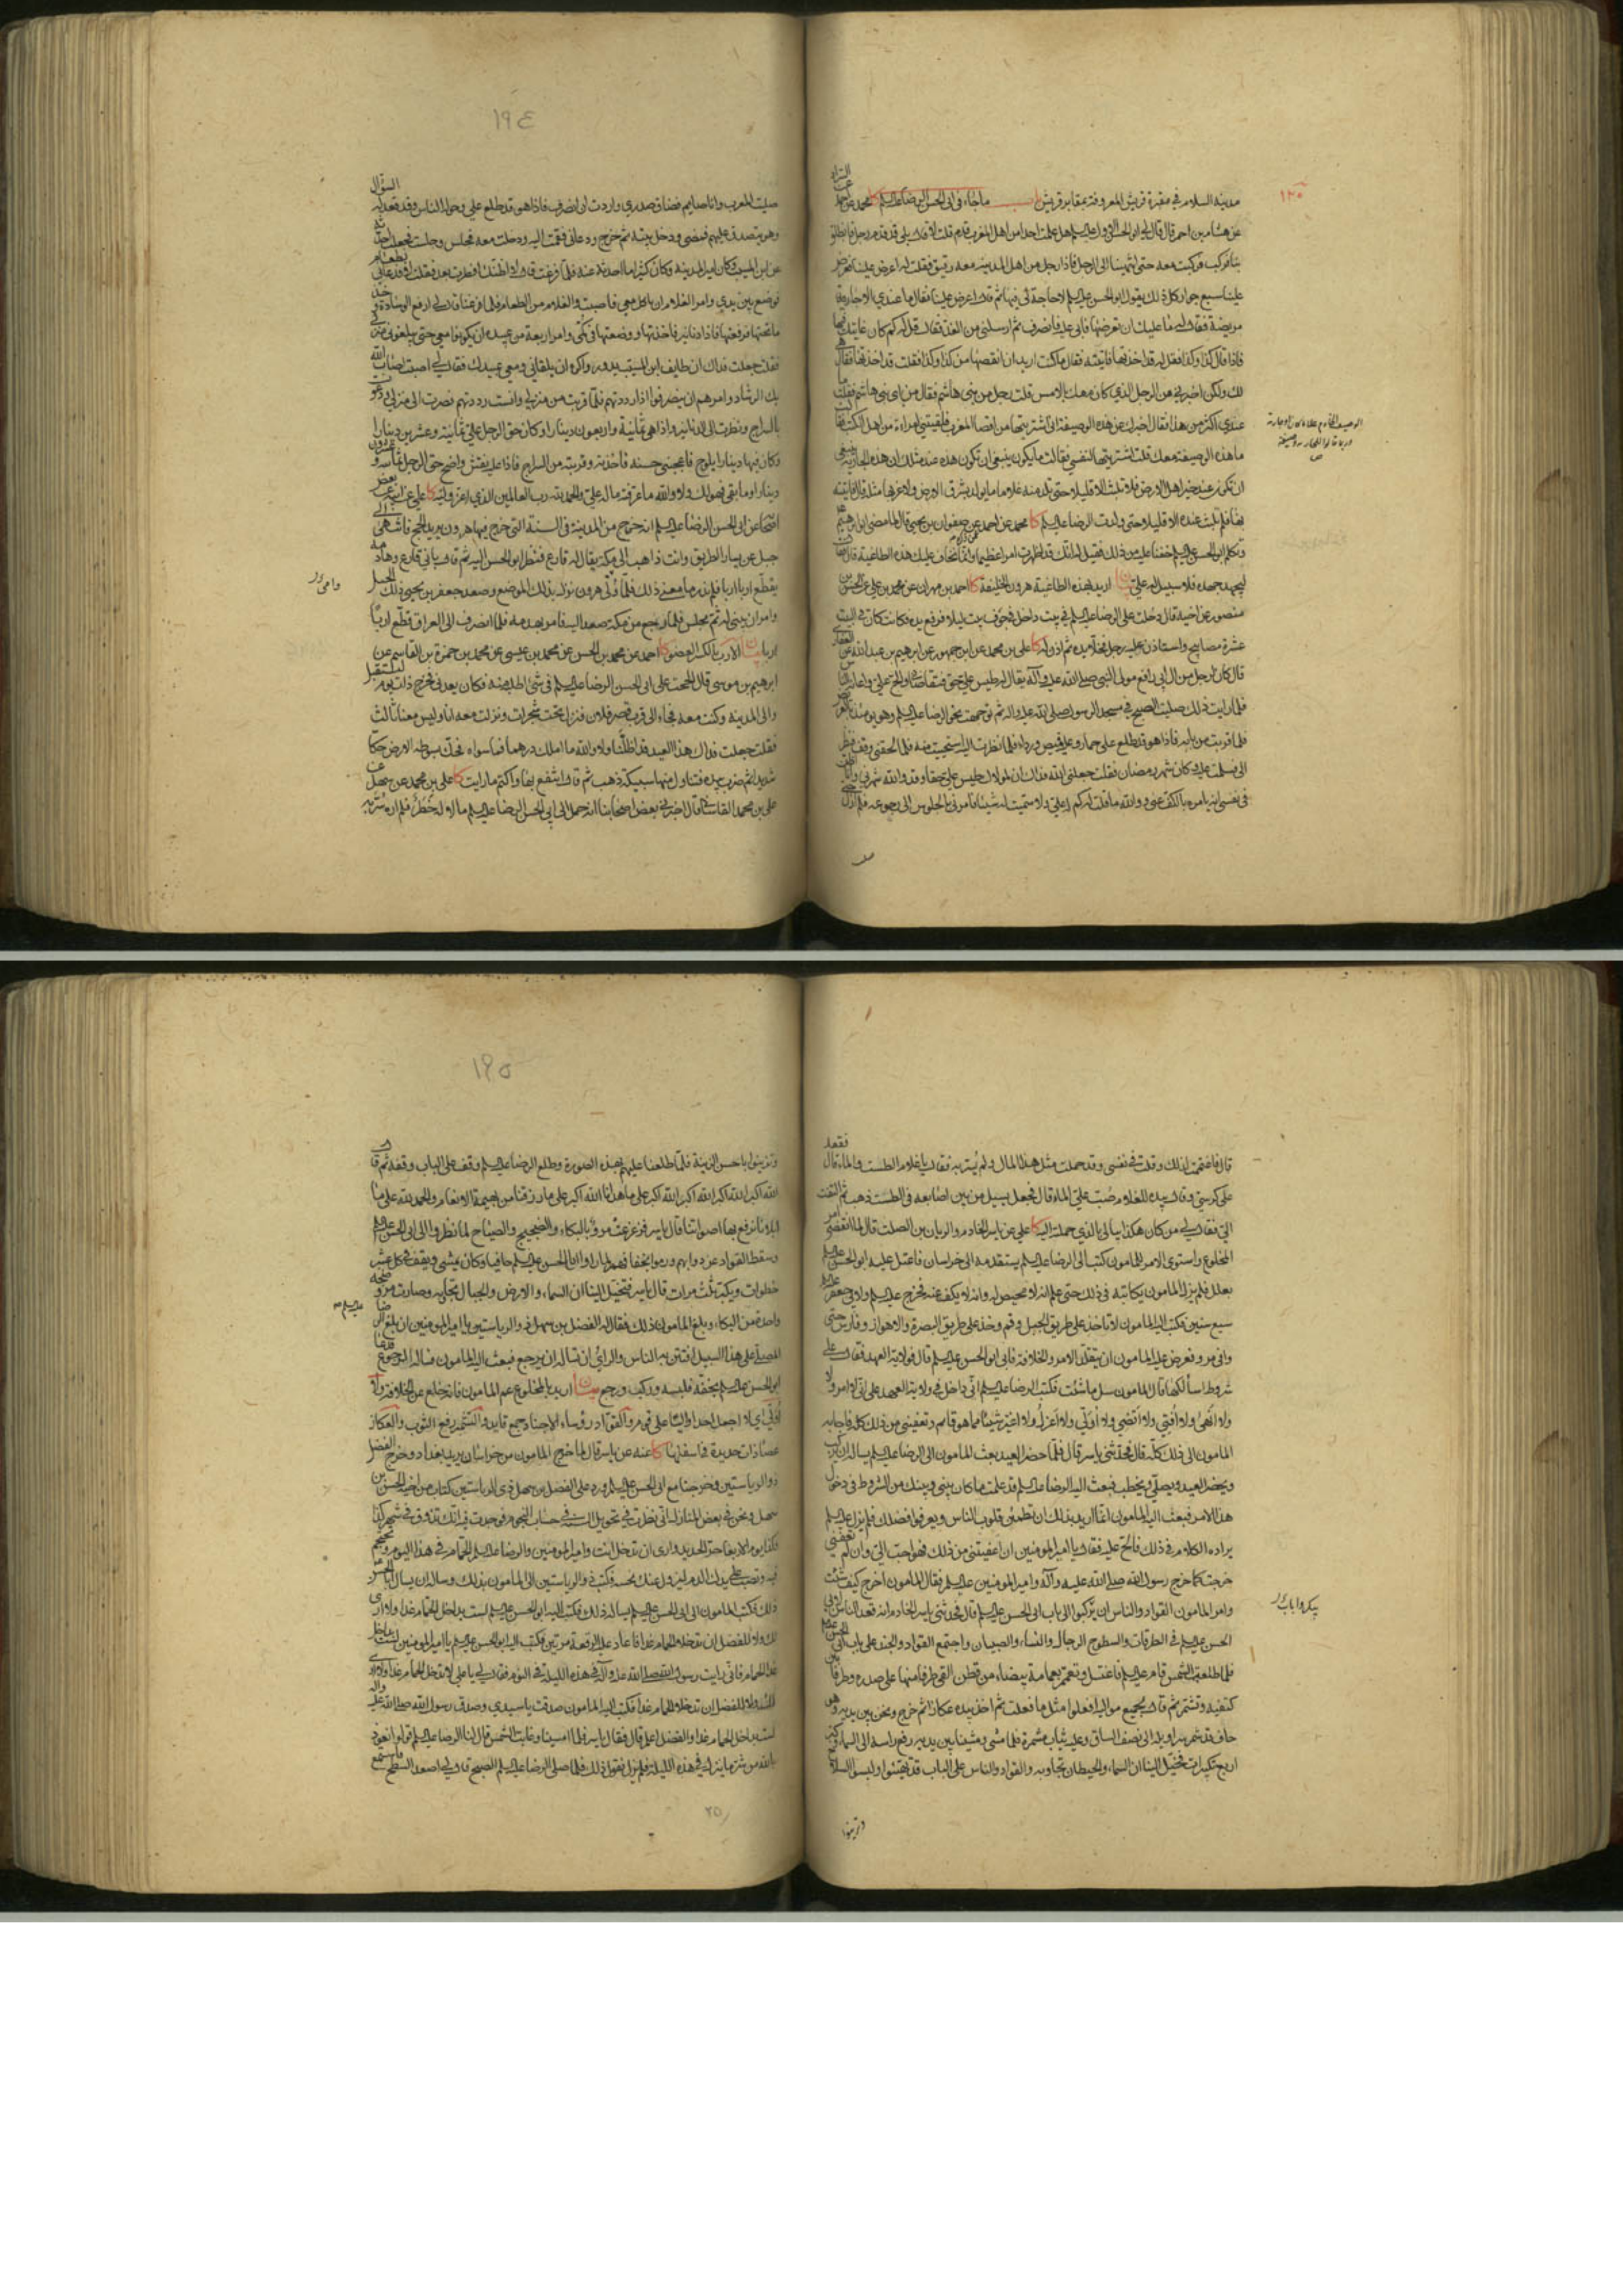 مدينة السلام في مقبرة قريش المعروفة بمقابر قريش باب ما جاء في ابي الحسن الرضا عليه السلم كا محمد عن احمد
عن هشام بن احمر قال قال لي ابو الحسن الاول عليه السلم هل علمت احدا من اهل المغرب قدم قلت لا قال بلى قد قدم رجل فانطلق
بنا فركب فركبت معه حتى انتهينا الى الرجل فاذا رجل من اهل المدينه معه رقيق فقلت له اعرض علينا فعرض
علينا سبع جوار كل ذلك يقول ابو الحسن عليه السلم لا حاجة لي فيها ثم قال اعرض علينا فقال ما عندي الا جارية
مريضة فقال له ما عليك ان تعرضها فابى عليه فانصرف ثم ارسلني من الغد فقال قل له كم كان غايتك فيها
فاذا قال كذا وكذا فقل له قد اخذتها فاتيته فقال ما كنت اريد ان انقصها من كذا وكذا فقلت قد اخذتها فقال هي
لك ولكن اخبرني من الرجل الذي كان معك بالامس قلت رجل من بني هاشم فقال من اي بني هاشم فقلت ما
عندي اكثر من هذا فقال اخبرك عن هذه الوصيفة اني اشتريتها من اقصا المغرب فلقيتني امراءة من اهل الكتاب فقالت
ما هذه الوصيفة معك قلت اشتريتها لنفسي فقالت ما يكون ينبغي ان تكون هذه عند مثلك ان هذه الجارية ينبغي
ان تكون عند خير اهل الارض فلا تلبث الا قليلا حتى تلد منه غلاما ما يولد بشرق الارض ولا غربها مثله قال فاتيته
بها فلم تلبث عنده الا قليلا حتى ولدت الرضا عليه السلم كا محمد عن احمد عن صفوان بن يحيى قال لما مضى ابو ابرهيم
وتكلم ابو الحسن عليه السلم خفنا عليه من ذلك فقيل له انك قد اظهرت امرا عظيما وانا نخاف عليك هذه الطاغية قال فقال
ليجهد جهده فلا سبيل له علي بيان اريد بهذه الطاغية هرون الخليفة كا احمد بن مهران عن محمد بن علي عن الحسن بن
منصور عن اخيه قال دخلت على الرضا عليه السلم في بيت داخل في جوف بيت ليلا فرفع يده فكانت كان في البيت
عشرة مصابيح واستاذن عليه رجل فخلا يده ثم اذن له كا علي بن محمد عن ابن جمهور عن ابرهيم بن عبد الله عن الغفاري
قال كان لرجل من ال ابي رافع مولى النبي صلى الله عليه وآله يقال له طيس علي حق فتقاضاني والح علي واعانه الناس
فلما رايت ذلك صليت الصبح في مسجد الرسول صلى الله عليه واله ثم توجهت نحو الرضا عليه السلم وهو يومئذ بالعريض
فلما قربت من بابه فاذا هو قد طلع على حمار وعليه قميص ورداء فلما نظرت اليه استحييت منه فلما لحقني وقف فنظر
الي فسلمت عليه وكان شهر رمضان فقلت جعلني الله فداك ان لمولاك طيس علي حقا وقد والله شهرني وانا اظن
في نفسي انه يامره بالكف عني ووالله ما قلت له كم له علي ولا سميت له شيئا فامرني بالجلوس الى رجوعه فلم ازل حتى
صليت المغرب وانا صايم فضاق صدري واردت ان انصرف فاذا هو قد طلع علي وحوله الناس وقد قعد له السؤال
وهو يتصدق عليهم فمضى ودخل بيته ثم خرج ودعاني فقمت اليه ودخلت معه فجلس وجلست فجعلت احدثه
عن ابن المسيب وكان امير المدينة وكان كثيرا ما احدثه عنه فلما فرغت قال لا اظنك افطرت بعد فقلت لا فدعا لي بطعام
فوضع بين يدي وامر الغلام ان ياكل معي فاصبت والغلام من الطعام فلما فرغنا قال لي ارفع الوسادة وخذ
ما تحتها فرفعتها فاذا دنانير فاخذتها ووضعتها في كمي وامر اربعة من عبيده ان يكونوا معي حتى يبلغوني منزلي
فقلت جعلت فداك ان طايف ابن المسيب يدور واكره ان يلقاني ومعي عبيدك فقال لي اصبت اصاب الله
بك الرشاد وامرهم ان ينصرفوا اذا رددتهم فلما قربت من منزلي وانست رددتهم فصرت الى منزلي ودعوت
بالسراج ونظرت الى الدنانير واذا هي ثمانية واربعون دينارا وكان حق الرجل علي ثمانية وعشرين دينارا
وكان فيها دينار يلوح فاعجبني حسنه فاخذته وقربته من السراج فاذا عليه نقش واضح حق الرجل ثمانية وعشرون
دينارا وما بقي فهو لك ولا والله ما عرفته ما له علي والحمد لله رب العالمين الذي اعز وليه كا علي عن ابيه عن بعض
اصحابنا عن ابي الحسن الرضا عليه السلم انه خرج من المدينة في السنة التي خرج فيها هرون يريد الحج فانتهى الى
جبل عن يسار الطريق وانت ذاهب الى مكة يقال له فارع فنظر ابو الحسن اليه ثم قال باني فارع وهادمه
يقطع اربا اربا فلم ندر ما معنى ذلك فلما ولى هرون نزل بذلك الموضع وصعد جعفر بن يحيى ذلك الجبل
وامر ان يبنى له ثم مجلس فلما رجع من مكة صعد اليه فامر بهدمه فلما انصرف الى العراق قطع اربا
اربا بيان الارب بالكسر العضو كا احمد عن محمد بن الحسن عن محمد بن عيسى عن محمد بن حمزة بن القاسم عن
ابرهيم بن موسى قال الححت على ابي الحسن الرضا عليه السلم في شئ اطلبه منه فكان يعدني فخرج ذات يوم ليستقبل
والي المدينه وكنت معه فجاء الى قرب قصر فلان فنزل تحت شجرات ونزلت معه انا وليس معنا ثالث
فقلت جعلت فداك هذا العيد قد اظلنا ولا والله ما املك درهما فما سواه فحك بسوطه الارض حكا
شديدا ثم ضرب بيده فتناول منها سبيكة ذهب ثم قال انتفع بها واكتم ما رايت كا علي بن محمد عن سهل عن
علي بن محمد القاساني قال اخبرني بعض اصحابنا انه حمل الى ابي الحسن الرضا عليه السلم مالا له خطر فلم اره سر به
١٩٤
قال فاغتممت لذلك وقلت في نفسي وقد حملت مثل هذا المال ولم يسر به فقال يا غلام الطست والماء قال فقعد
على كرسي وقال بيده للغلام صب علي الماء قال فجعل يسيل من بين اصابعه في الطست ذهب ثم التفت
الي فقال لي من كان هكذا لا يبالي بالذي حملته اليه كا علي عن ياسر الخادم والريان بن الصلت قال لما انقضى امر
المخلوع واستوى الامر للمامون كتب الى الرضا عليه السلم يستقدمه الى خراسان فاعتل عليه ابو الحسن عليه السلم
بعلل فلم يزل المامون يكاتبه في ذلك حتى علم انه لا محيص له وانه لا يكف عنه فخرج عليه السلم ولابي جعفر عليه السلم
سبع سنين فكتب اليه المامون لا تاخذ على طريق الجبل وقم وخذ على طريق البصرة والاهواز وفارس حتى
وافى مرو فعرض عليه المامون ان يتقلد الامر والخلافة فابى ابو الحسن عليه السلم قال فولاية العهد فقال على
شروط اسألكها قال المامون سل ما شئت فكتب الرضا عليه السلم اني داخل في ولاية العهد على ان لا امر ولا
ولا انهى ولا افتي ولا اقضي ولا اولي ولا اعزل ولا اغير شيئا مما هو قائم وتعفيني من ذلك كله فاجابه
المامون الى ذلك كله قال فحدثني ياسر قال فلما حضر العيد بعث المامون الى الرضا عليه السلم يساله ان يركب
ويحضر العيد ويصلي ويخطب فبعث اليه الرضا عليه السلم قد علمت ما كان بيني وبينك من الشروط في دخول
هذا الامر فبعث اليه المامون انما اريد بذلك ان تطمئن قلوب الناس ويعرفوا فضلك فلم يزل عليه السلم
يراده الكلام في ذلك فالح عليه فقال يا امير المومنين ان اعفيتني من ذلك فهو احب الي وان لم تعفني
خرجت كما خرج رسول الله صلى الله عليه وآله وامير المومنين عليه السلم فقال المامون اخرج كيف شئت
وامر المامون القواد والناس ان يركبوا الى باب ابي الحسن عليه السلم قال فحدثني ياسر الخادم انه قعد الناس لابي
الحسن عليه السلم في الطرقات والسطوح الرجال والنساء والصبيان واجتمع القواد والجند على باب ابي الحسن عليه السلم
فلما طلعت الشمس قام عليه السلم فاغتسل وتعمم بعمامة بيضاء من قطن القى طرفا منها على صدره وطرفا بين
كتفيه وتشمر ثم قال لجميع مواليه افعلوا مثل ما فعلت ثم اخذ بيده عكازا ثم خرج ونحن بين يديه وهو
حاف قد شمر سراويله الى نصف الساق وعليه ثياب مشمرة فلما مشى ومشينا بين يديه رفع راسه الى السماء وكبر
اربع تكبيرات فخيل الينا ان السماء والحيطان تجاوبه والقواد والناس على الباب قد تهيئوا ولبسوا السلاح
وتزينوا
وتزينوا باحسن الزينة فلما طلعنا عليهم بهذه الصورة وطلع الرضا عليه السلم وقف على الباب وقفة ثم قال
الله اكبر الله اكبر الله اكبر الله اكبر على ما هدانا الله اكبر على ما رزقنا من بهيمة الانعام والحمد لله على ما
ابلانا نرفع بها اصواتنا قال ياسر فتزعزعت مرو بالبكاء والضجيج والصياح لما نظروا الى ابي الحسن عليه السلم
وسقط القواد عن دوابهم ورموا بخفافهم لما راوا ابا الحسن عليه السلم حافيا وكان يمشي ويقف في كل عشر
خطوات ويكبر ثلث مرات قال ياسر فتخيل الينا ان السماء والارض والجبال تجاوبه وصارت مرو ضجة
واحدة من البكاء وبلغ المامون ذلك فقال له الفضل بن سهل ذو الرياستين يا امير المومنين ان بلغ الرضا
المصلى على هذا السبيل افتتن به الناس والراي ان تساله ان يرجع فبعث اليه المامون فساله الرجوع فدعا
ابو الحسن عليه السلم بخفه فلبسه وركب ورجع بيان اريد بالمخلوع عم المامون فانه خلع عن الخلافة ولا
اولي اي لا اجعل احدا واليا على قوم والقواد رؤساء الاجناد جمع قايد والتشمر رفع الثوب والعكاز
عصا ذات حديدة في اسفلها كا عنه عن ياسر قال لما خرج المامون من خراسان يريد بغداد وخرج الفضل
ذو الرياستين وخرجنا مع ابي الحسن عليه السلم ورد على الفضل بن سهل ذي الرياستين كتاب من اخيه الحسن بن
سهل ونحن في بعض المنازل اني نظرت في تحويل السنة في حساب النجوم فوجدت فيه انك تذوق في شهر كذا
وكذا يوم الاربعا حر الحديد وارى ان تدخل انت وامير المومنين والرضا عليه السلم الحمام في هذا اليوم وتحتجم
فيه وتصب على يدك الدم ليزول عنك نحسه فكتب ذو الرياستين الى المامون بذلك وساله ان يسال ابا الحسن
ذلك فكتب المامون الى ابي الحسن عليه السلم يساله ذلك فكتب اليه ابو الحسن عليه السلم لست بداخل الحمام غدا ولا ارى
لك ولا للفضل ان تدخلا الحمام غدا فاعاد عليه الرقعة مرتين فكتب اليه ابو الحسن عليه السلم يا امير المومنين لست بداخل
غدا الحمام فاني رايت رسول الله صلى الله عليه وآله في هذه الليلة في النوم فقال لي يا علي لا تدخل الحمام غدا ولا ارى
لك ولا للفضل ان تدخلا الحمام غدا فكتب اليه المامون صدقت يا سيدي وصدق رسول الله صلى الله عليه واله
لست بداخل الحمام غدا والفضل اعلم قال فقال ياسر فلما امسينا وغابت الشمس قال لنا الرضا عليه السلم قولوا نعوذ
بالله من شر ما ينزل في هذه الليلة فلم نزل نقول ذلك فلما صلى الرضا عليه السلم الصبح قال لي اصعد السطح فاستمع
١٩٥